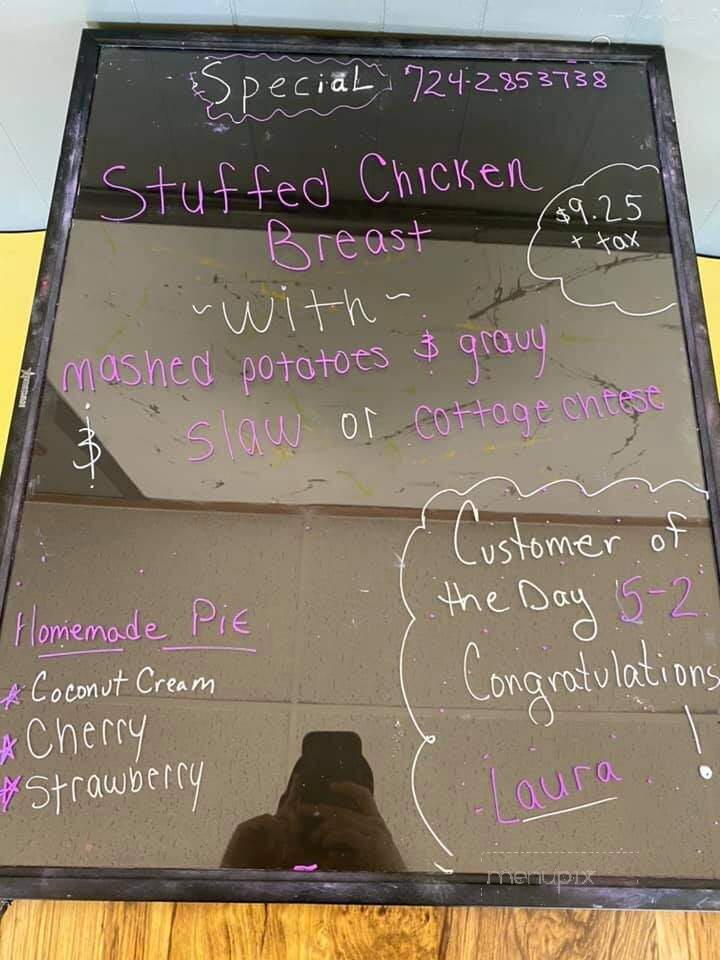 Special 724-2853738
Stuffed Chicken
Breast
$9.25
+ tax
~with~
mashed potatoes & gravy
& slaw or cottage cheese
Customer of
the Day 5-2
Congratulations
!
Laura
Homemade Pie
Coconut Cream
Cherry
Strawberry
menupix